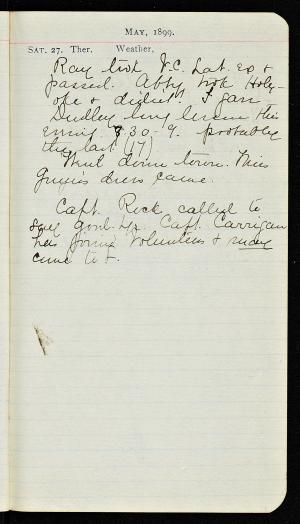 MAY, 1899.
SAT. 27. Ther. Weather,
Ray took J.C. Lat. ex &
passed. Abby took Holy-
oke & didn't. I gave
Dudley long lesson this
evening 8.30-9. probably
the last (17)
Went down town. Miss
dress came.
Capt. Rock called to
say good-by. Capt. Carrigan
has joined Volunteers & may
come to